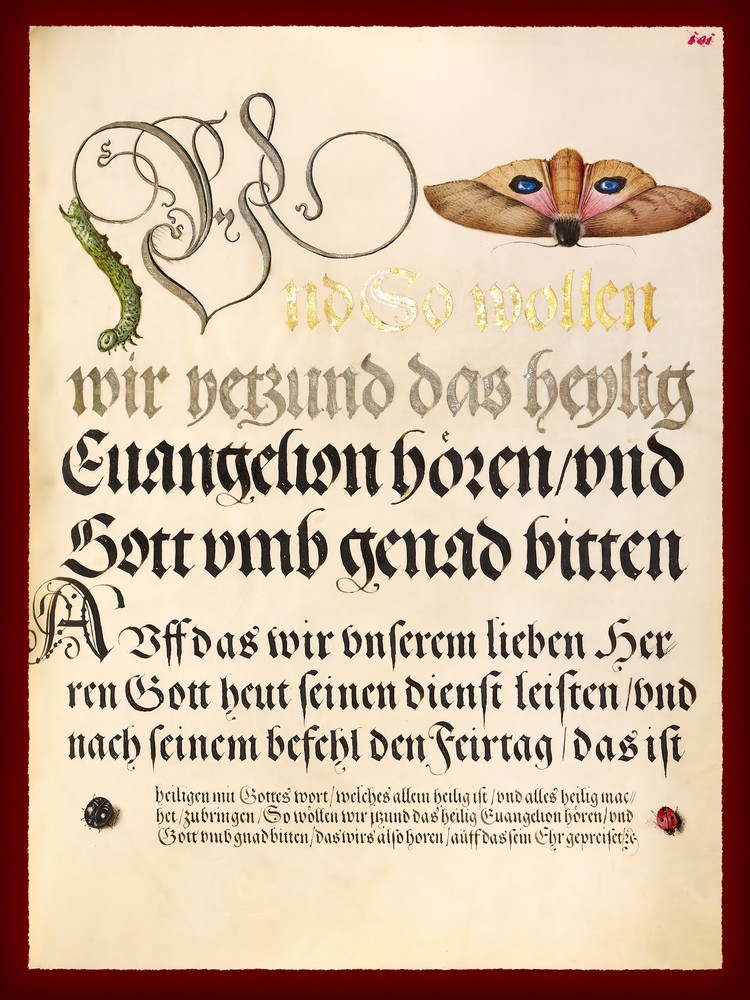 101
Und So wollen
wir yetzund das heylig
Euangelion hören/vnd
Gott vmb genad bitten
AVff das wir vnserem lieben Her
ren Gott heut seinen dienst leisten/vnd
nach seinem befehl den Feirtag/das ist
heiligen mit Gottes wort/welches allein heilig ist/vnd alles heilig mac/
het/zubringen/So wöllen wir jtzund das heilig Euangelion hören/vnd
Gott vmb gnad bitten/das wirs also horen/auff das sein Ehr gepreiset